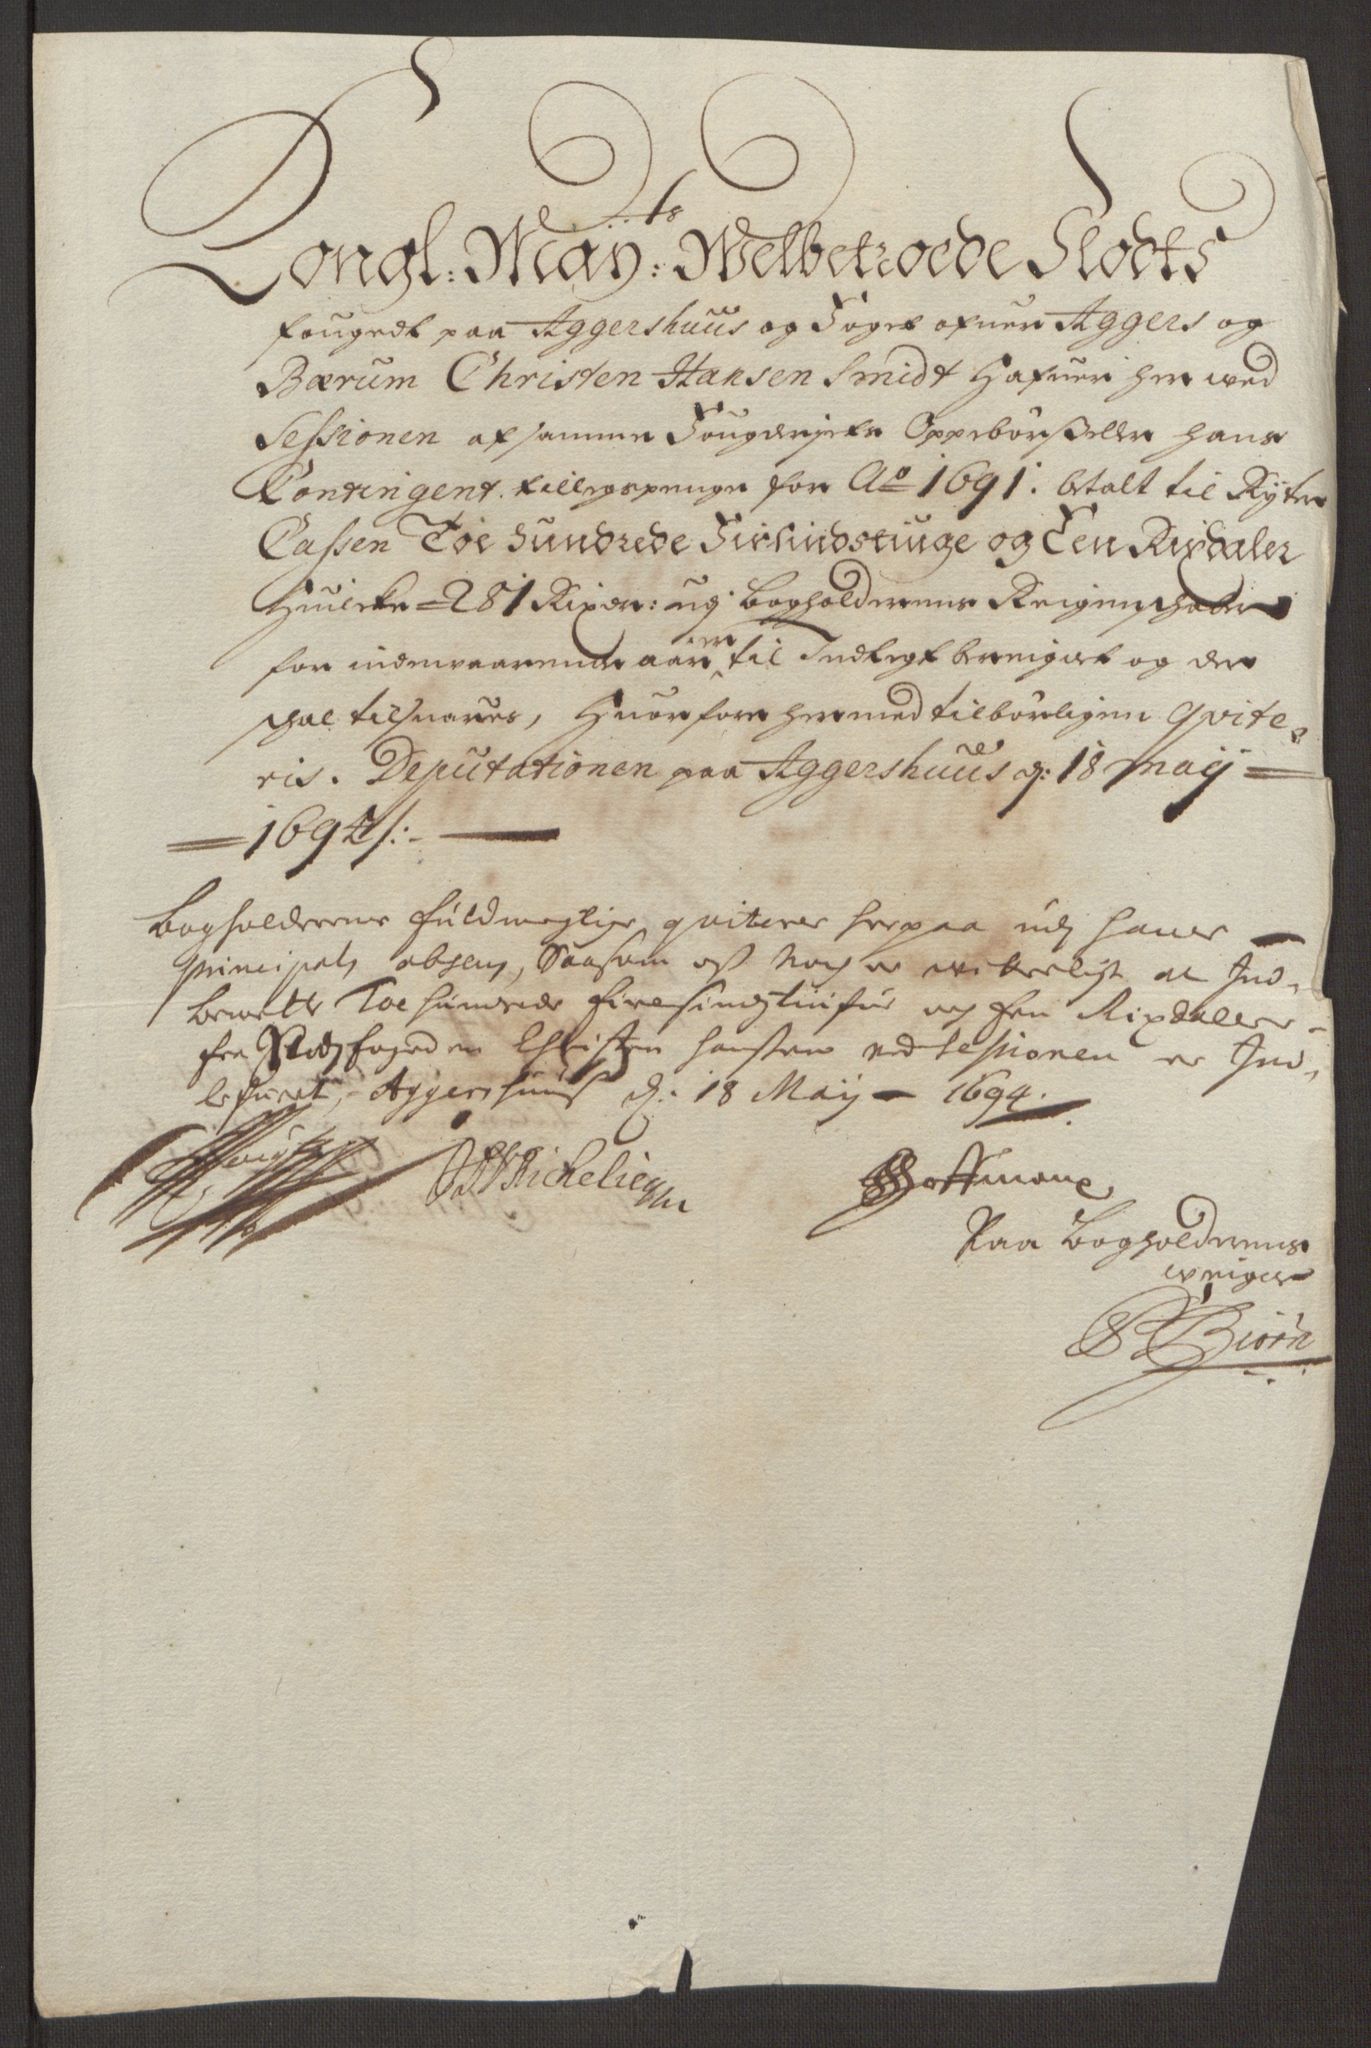 Kongl: May:ts Welbetroede Slodts
fougedt paa Aggershuus og Foget ofuer Aggers og
Bærum Christen Hansen Smidt Hafuer her ved
Sessionen af samme Fougderjets Oppebørsseller hans
Contingent tillegspenge for Ao 1691. betalt til Ryter
Cassen Toe hundrede Firsindstiuge og Een Rixdaler
Huilcke = 281 Rixdr: udj Bogholderens Reigenschaber
for inderwaarende aar ere til Indtegt bereignet og der
schal tilsuares, Huorfore hermed tilbørligen qvite-
ris. Deputationen paa Aggershuus d: 18 Maij
1694/:-
Bogholderens fuldmegtige qviterer herpaa udj hans
Principals absens, Saasom os nok er at Ind-
Toe hundrede firesindstiufue og Een Rixdaller
fra Slodsfogeden Christen Hansen ved Sessionen er Ind-
lefueret, Aggershuus d: 18 Maij 1694.
Michelien
Hoffmann
Paa Bogholderens
weigne
Biørn